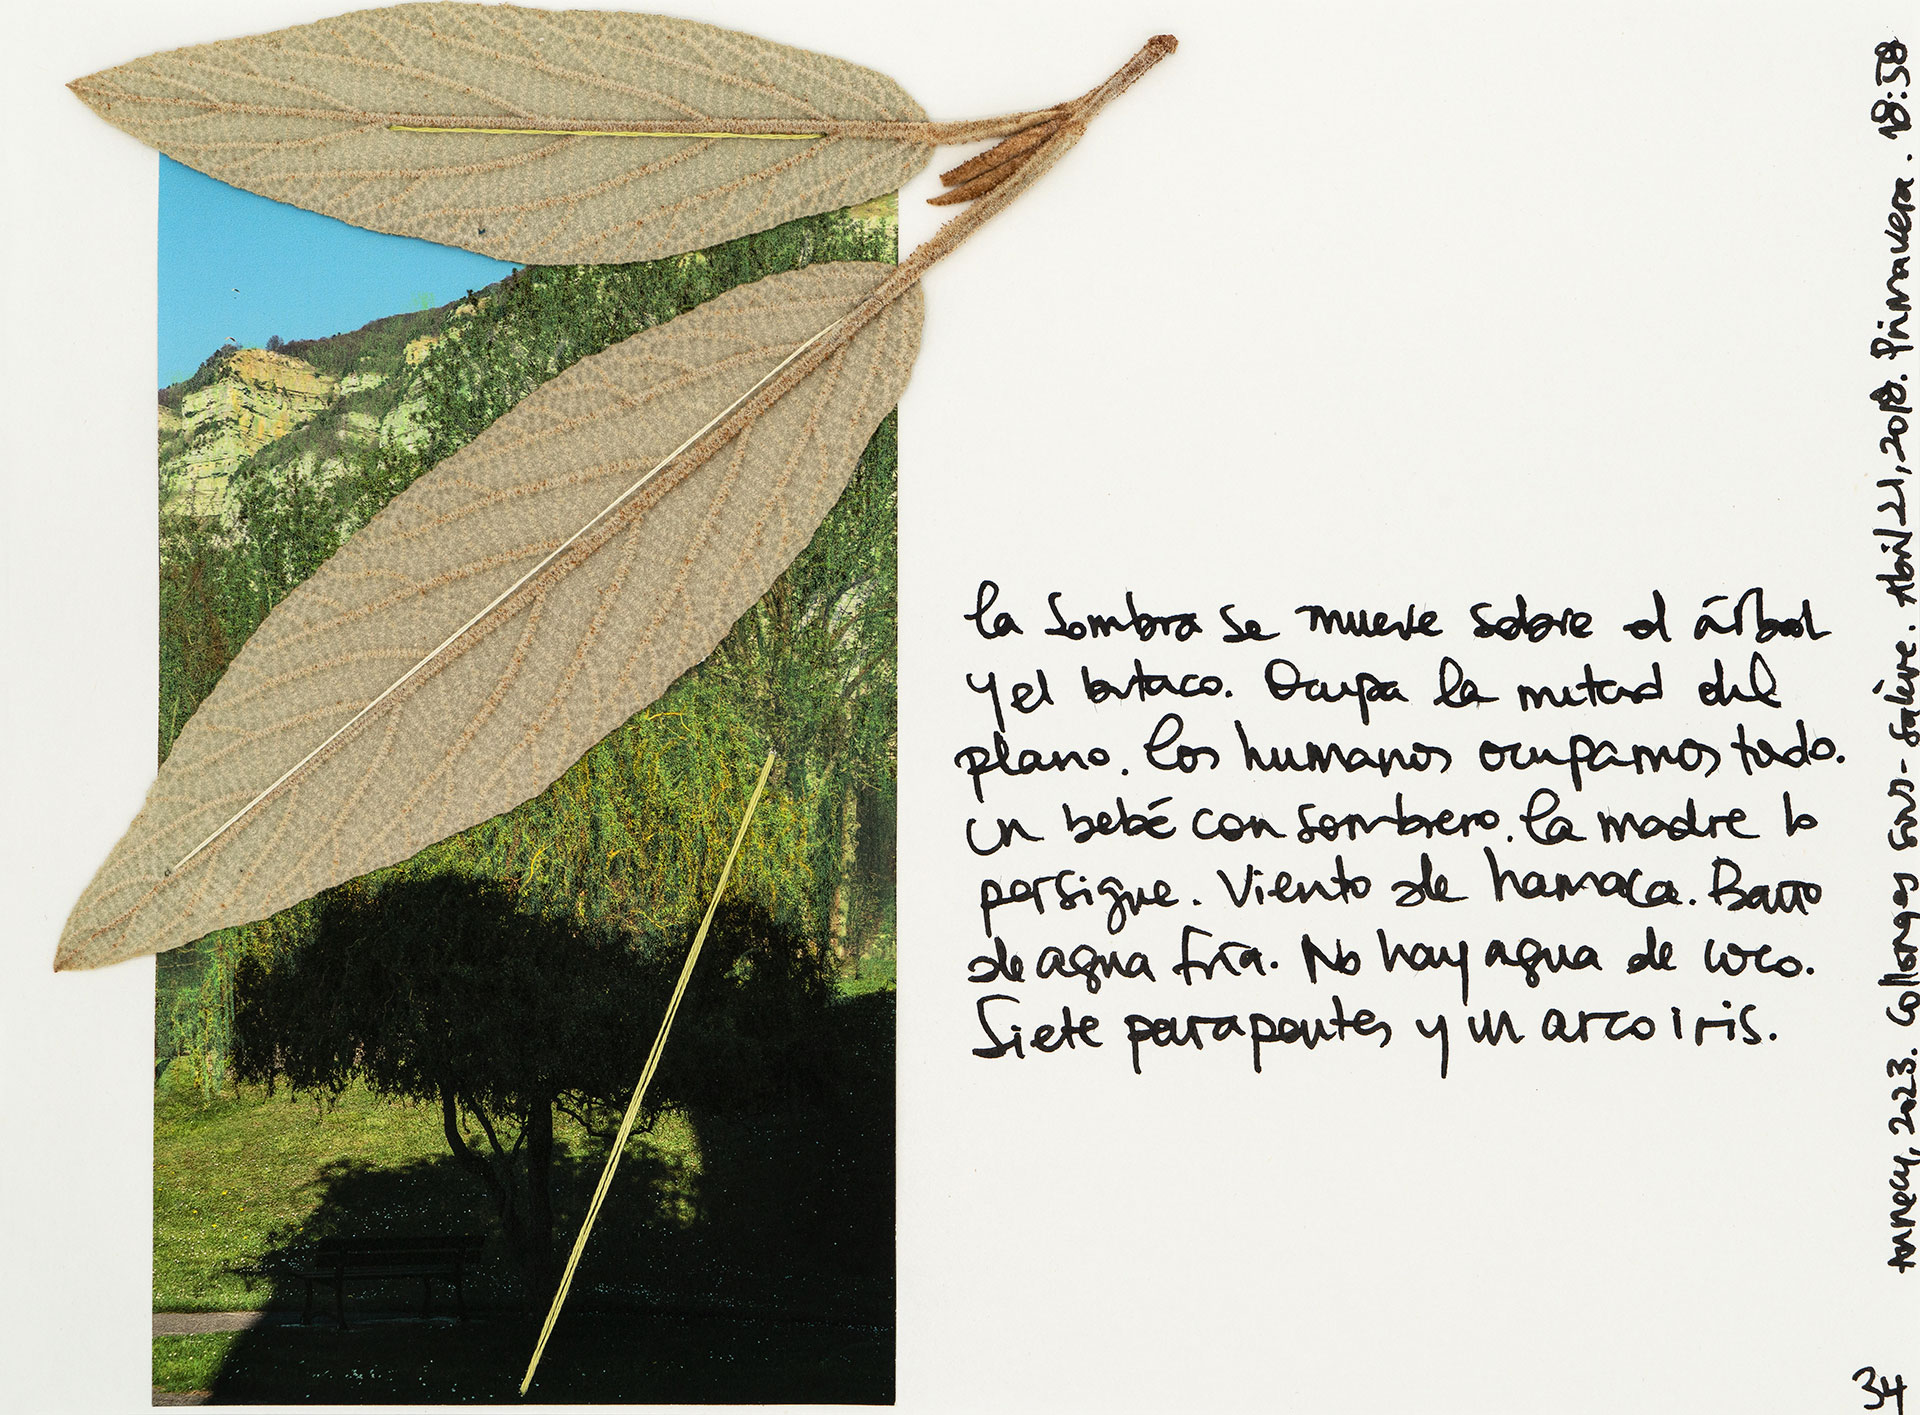 la sombra se mueve sobre el árbol
y el butaco. Ocupa la mitad del
plano. los humanos ocupamos todo.
un bebé con sombrero. la madre lo
persigue. Viento de hamaca. Barro
de agua fría. No hay agua de coco.
Siete parapentes y un arcoiris.
Annecy, 2023. Collonges sous-Salève. Abril 21, 2018. Primavera. 18:58
34